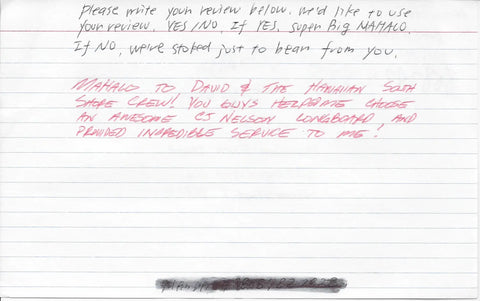 Please write your review below. We'd like to use
your review. YES/NO. If YES, super Big MAHALO.
If NO, we're stoked just to hear from you.
MAHALO TO DAVID & THE HAWAIIAN SOUTH
SHORE CREW! YOU GUYS HELPED ME CHOOSE
AN AWESOME CJ NELSON LONGBOARD AND
PROVIDED INCREDIBLE SERVICE TO ME!